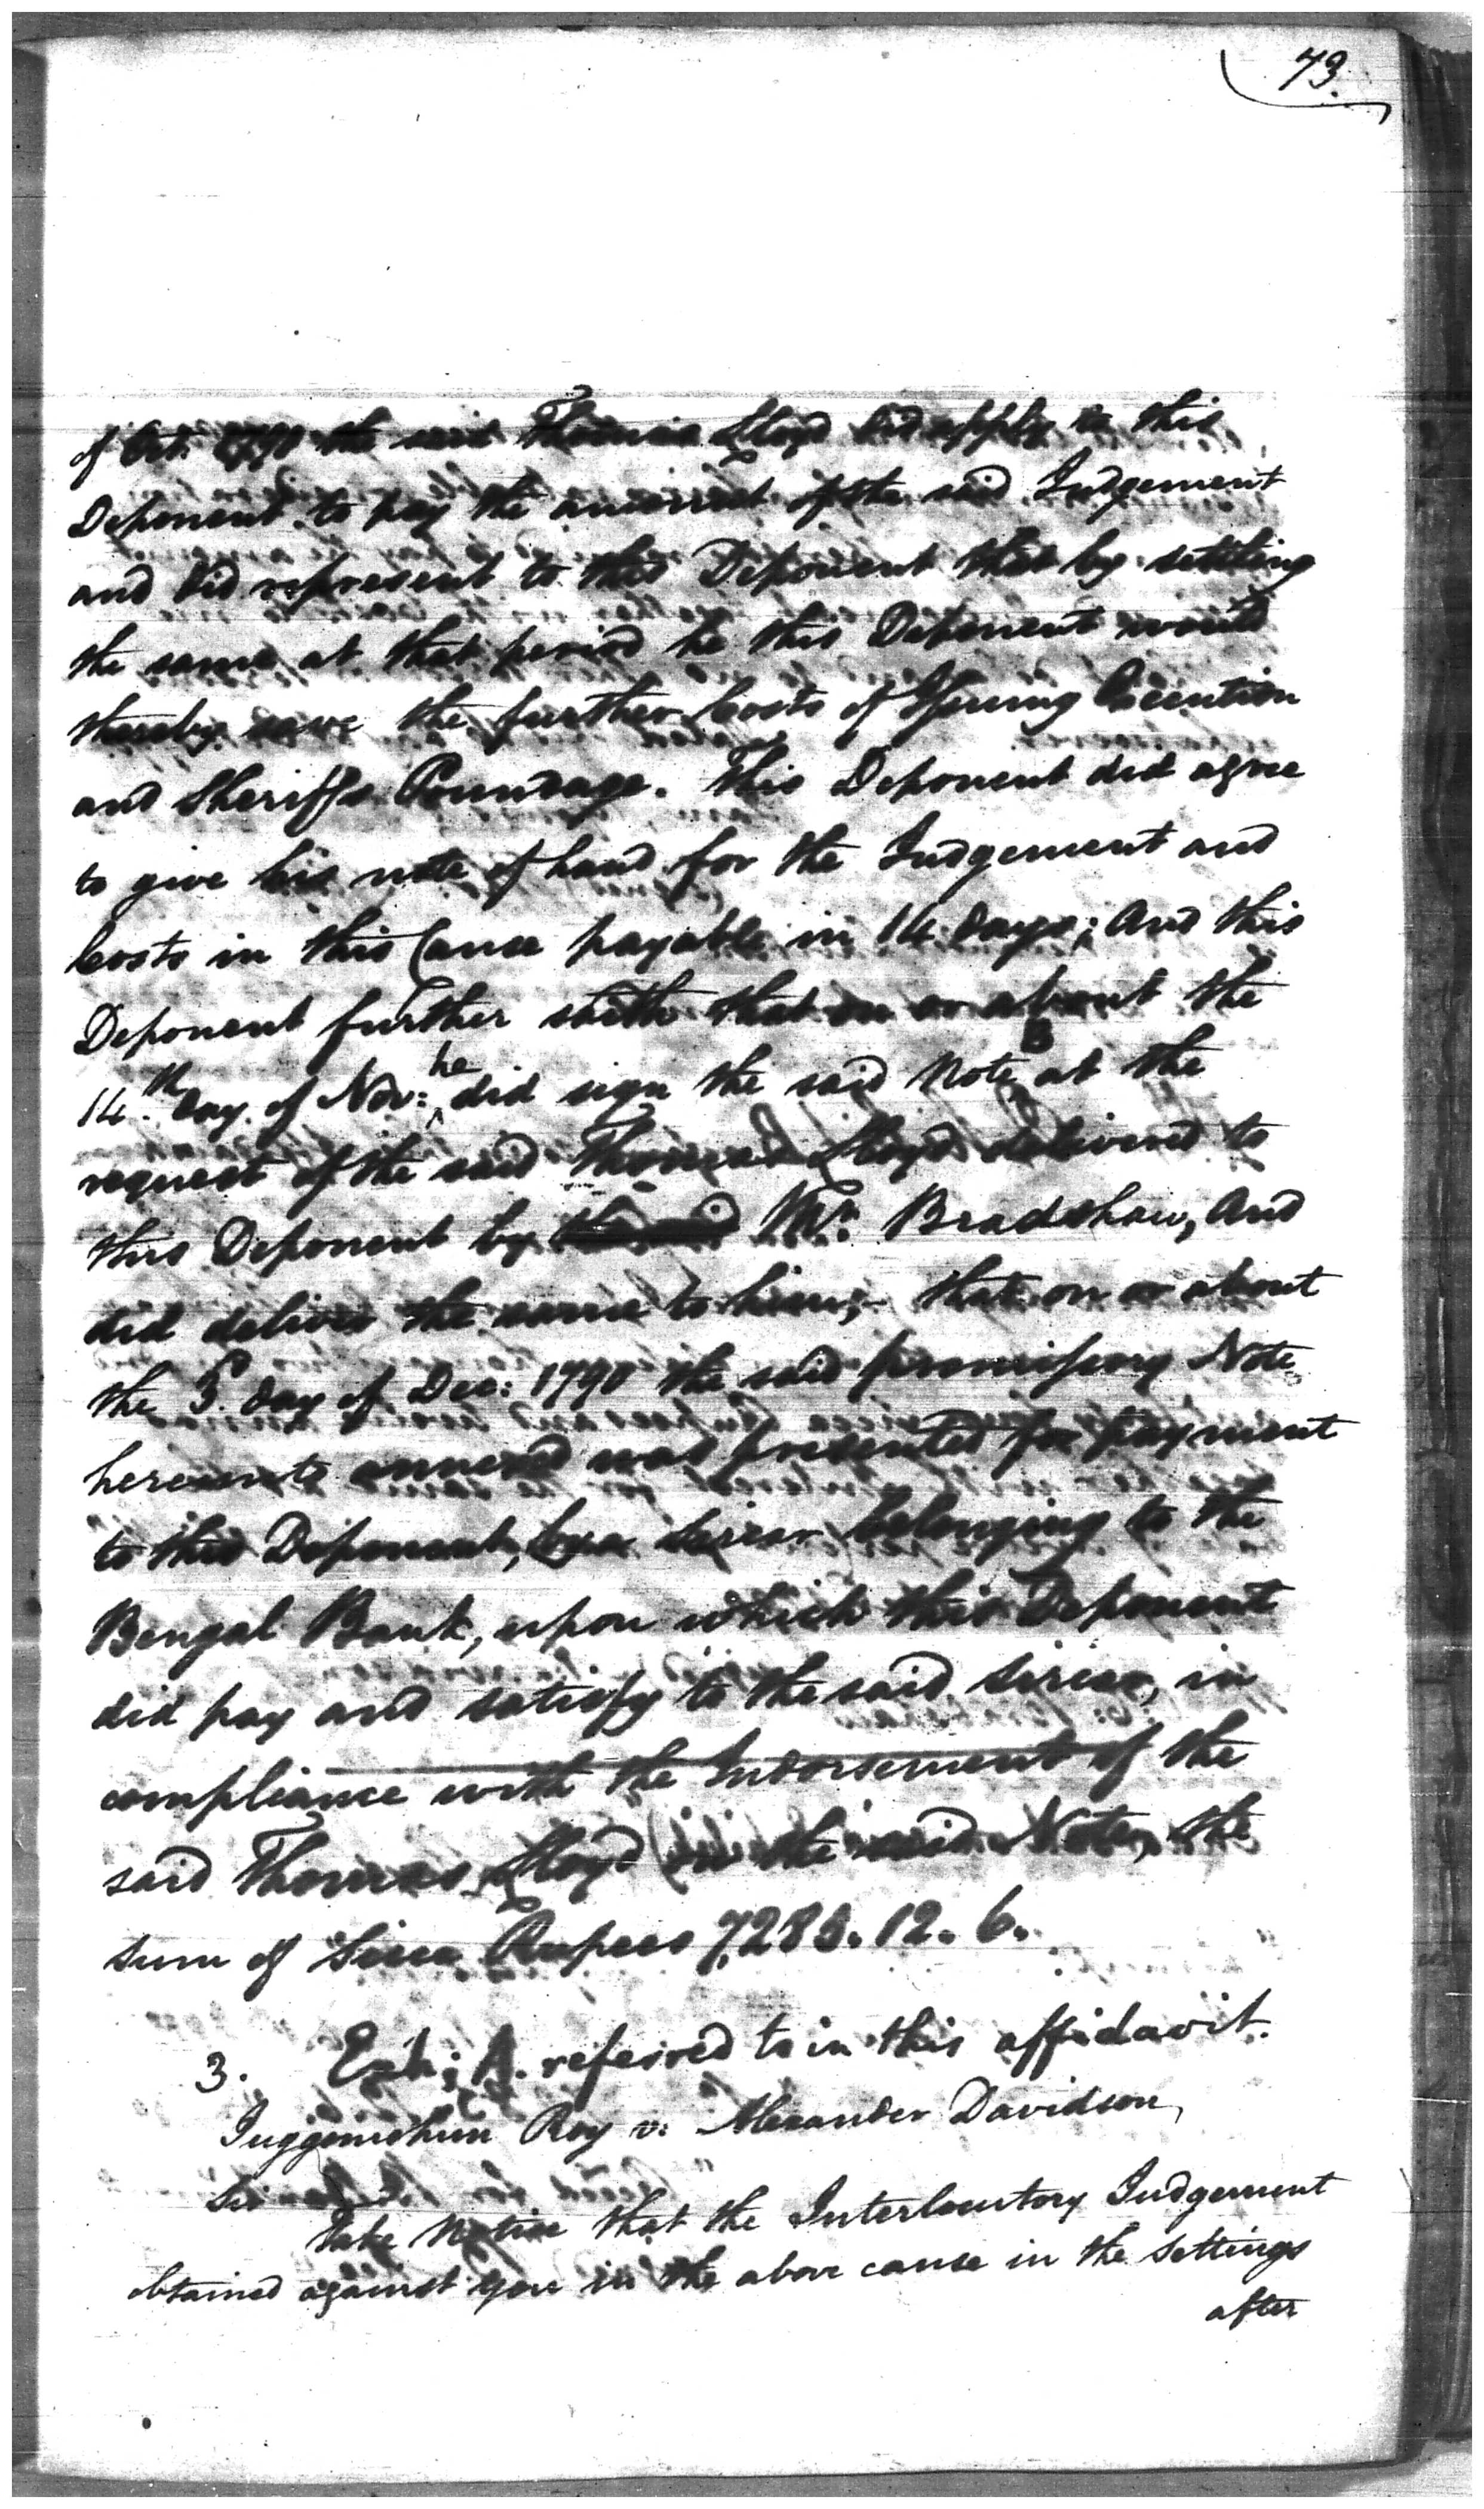 73.
of Oct. 1790 the said Thomas Lloyd did apply to this
Deponent to pay the amount of the said Judgement
and did represent to this Deponent that by settling
the same at that period he this Deponent would
thereby save the further Costs of Issuing Execution
and Sheriffs Poundage. This Deponent did agree
to give his note of hand for the Judgement and
Costs in this Cause payable in 14 days; And this
Deponent further saith that on or about the
14.th day of Nov: he did sign the said Note B at the
request of the said Thomas Lloyd delivered to
this Deponent by Mr. Bradshaw, And
did deliver the same to him; that on or about
the 3. day of Dec: 1790 the said promissory Note
hereunto annexed was presented for payment
to this Deponent, by a Sircar belonging to the
Bengal Bank, upon which this Deponent
did pay and satisfy to the said Sircar, in
compliance with the Indorsement of the
said Thomas Lloyd on the said Note, the
sum of Sicca Rupees 7285.12.6.
3. Exh: A. referred to in this affidavit.
Juggomohun Roy v: Alexander Davidson,
Sir
Take Notice that the Interlocutory Judgement
obtained against you in the above cause in the Settings
after